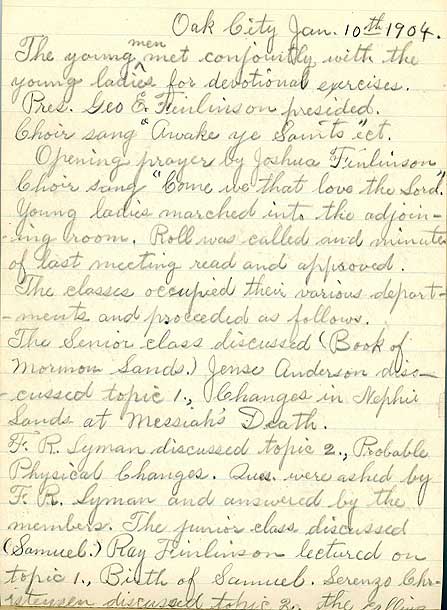 Oak City Jan. 10th 1904.
The young men met conjointly with the
young ladies for devotional exercises.
Pres. Geo E. Finlinson presided.
Choir sang "Awake ye Saints" ect.
Opening prayer by Joshua Finlinson
Choir sang "Come we that love the Lord."
Young ladies marched into the adjoin-
-ing room. Roll was called and minutes
of last meeting read and approved.
The classes occupied their various depart-
-ments and proceeded as follows.
The Senior class discussed (Book of
Mormon Lands.) Jense Anderson disc-
-cussed topic 1., Changes in Nephite
Lands at Messiah's Death.
F. R. Lyman discussed topic 2., Probable
Physical Changes. Ques. were asked by
F. R. Lyman and answered by the
members. The junior class discussed
(Samuel.) Ray Finlinson lectured on
topic 1., Birth of Samuel. Lorenzo Chr-
istensen discussed topic 2., the calling